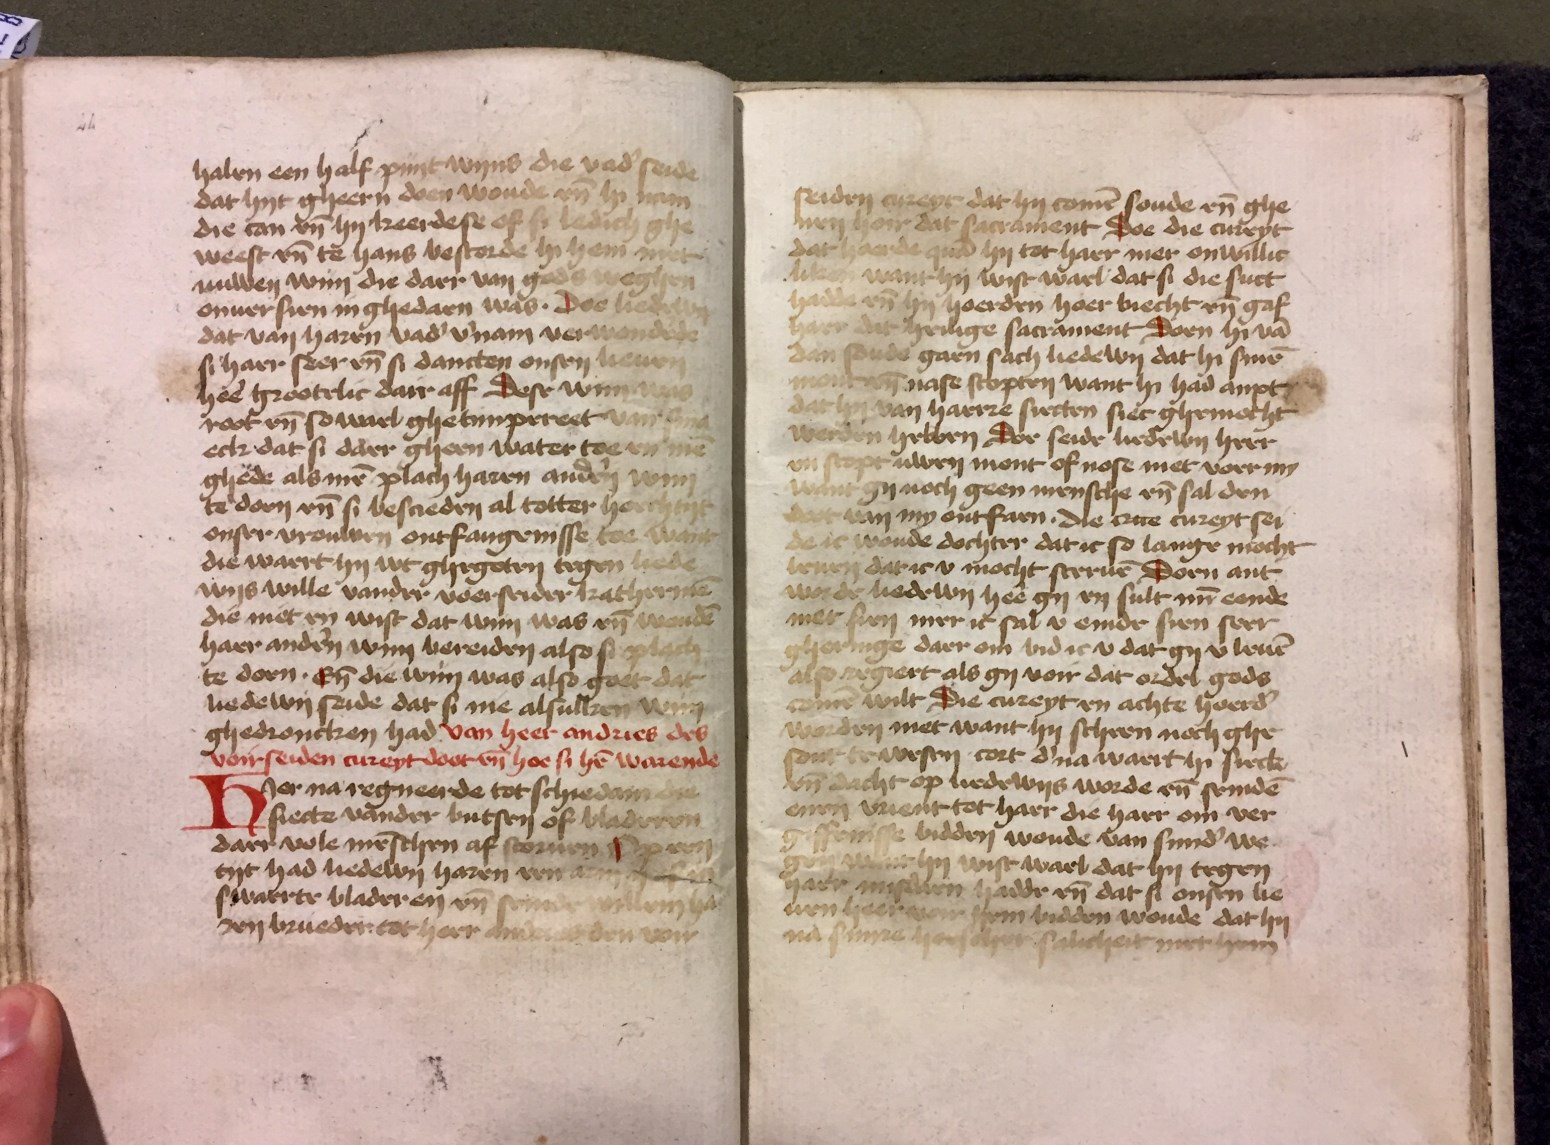 halen een half pint wijns die vad' seide
dat hijt gheern doen woude eñ hi nam
die can eñ hij keerdese of si ledich ghe
weest eñ te hans bestorde hi hem met
nuwen wijn die daer van gods weghen
onversien in ghedaen was. Doe liedewij
dat van haren vad' v'nam verwonderde
si haer seer eñ si dancten onsen lieven
heē grootelic daer aff Dese wijn was
root eñ so wael ghetimpereert van
eck dat si daer gheen water toe en
als mē plach haren and'en wijn
te doen eñ si bescieden al totter hoechtijt
onser vrouwen ontfangenisse toe want
die waert hij wt ghegoten tegen liede
wijs wille vander voerseider katherinē
die niet en wist dat wijn was eñ woudē
haer and'en wijn bereiden also si plach
te doen. Eñ die wijn was also goet dat
liedewij seide dat si nie alsulken wijn
ghedroncken had van heer andries des
voirseiden cureyt doot eñ hoe si hē waerende
Hier na regneerde tot schiedam die
siecte vander butsen of bladeren
daer vole mēschen af storven Op een
tijt had liedewij haren een arm
swaerte bladeren eñ seinde willem ha
ren brueder tot heer andries den voir
seiden cureyt dat hij comē soude eñ ghe
ven hoir dat sacrament Doe die cureyt
dat hoerde quā hij tot haer mer onwillic
liken want hij wist wael dat si die suct
hadde eñ hij hoerden hoer biecht eñ gaf
haer dat heilige sacrament Doen hi vā
dan soude gaen sach liedewij dat hi sinē
mont eñ nase stopten want hi had anxt
dat hij van haerre siecten siec ghemocht
werden hebben Doe seide liedewij heer
en stopt uwen mont of nose niet voer my
want gij noch geen mensche eñ sal den
doot van my ontfaen. die cureyt sei
de ic woude dochter dat ic so lange mocht
leven dat ic v mocht stervē Doen ant
worde liedewij heē gij en sult mijn eende
niet sien mer ic sal v einde sien seer
gheringe daer om bid ic v dat gij v levē
also regiert als gij voir dat ordel gods
comē wilt Die cureyt en achte hoerd'
worden niet want hij scheen noch ghe
sont te wesen cort d'na waert hi sieck
eñ dacht op liedewijs worde eñ seindē
enen vrient tot haer die haer om ver
giffenisse bidden woude van sund' we
gen want hij wist wael dat hij tegen
haer misdaen hadde eñ dat si onsen lie
ven heer voir hem bidden woude dat hij
na sinre salicheit met hem